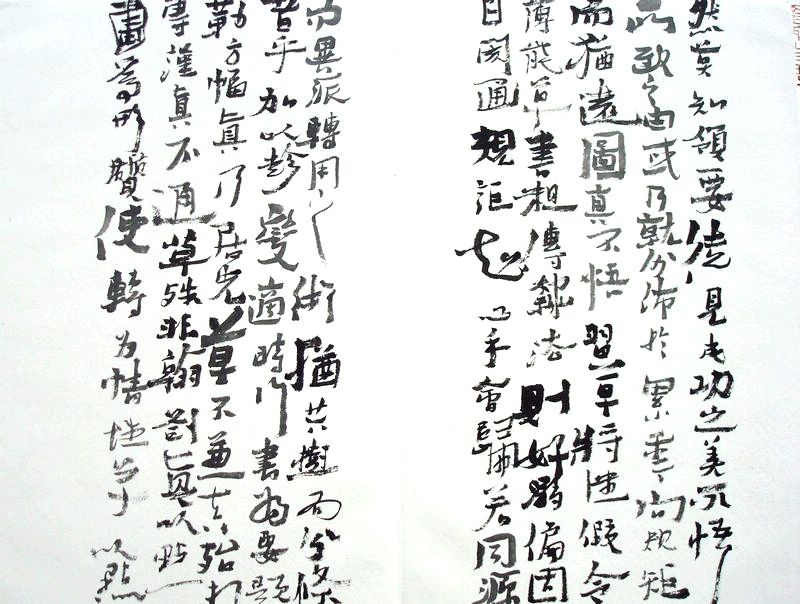 然莫知領要徒見成功之美不悟
所致之由或乃就分布於累年向規矩
而猶遠圖真不悟習草將迷假令
薄能草書粗傳隸法則好溺偏固
自閡通規詎知心手會歸若同源
而異派轉用之術猶共樹而分條
者乎加以趨變適時行書為要題
勒方幅真乃居先草不兼真殆於
專謹真不通草殊非翰劄真以點
畫為形質使轉為情性草以點